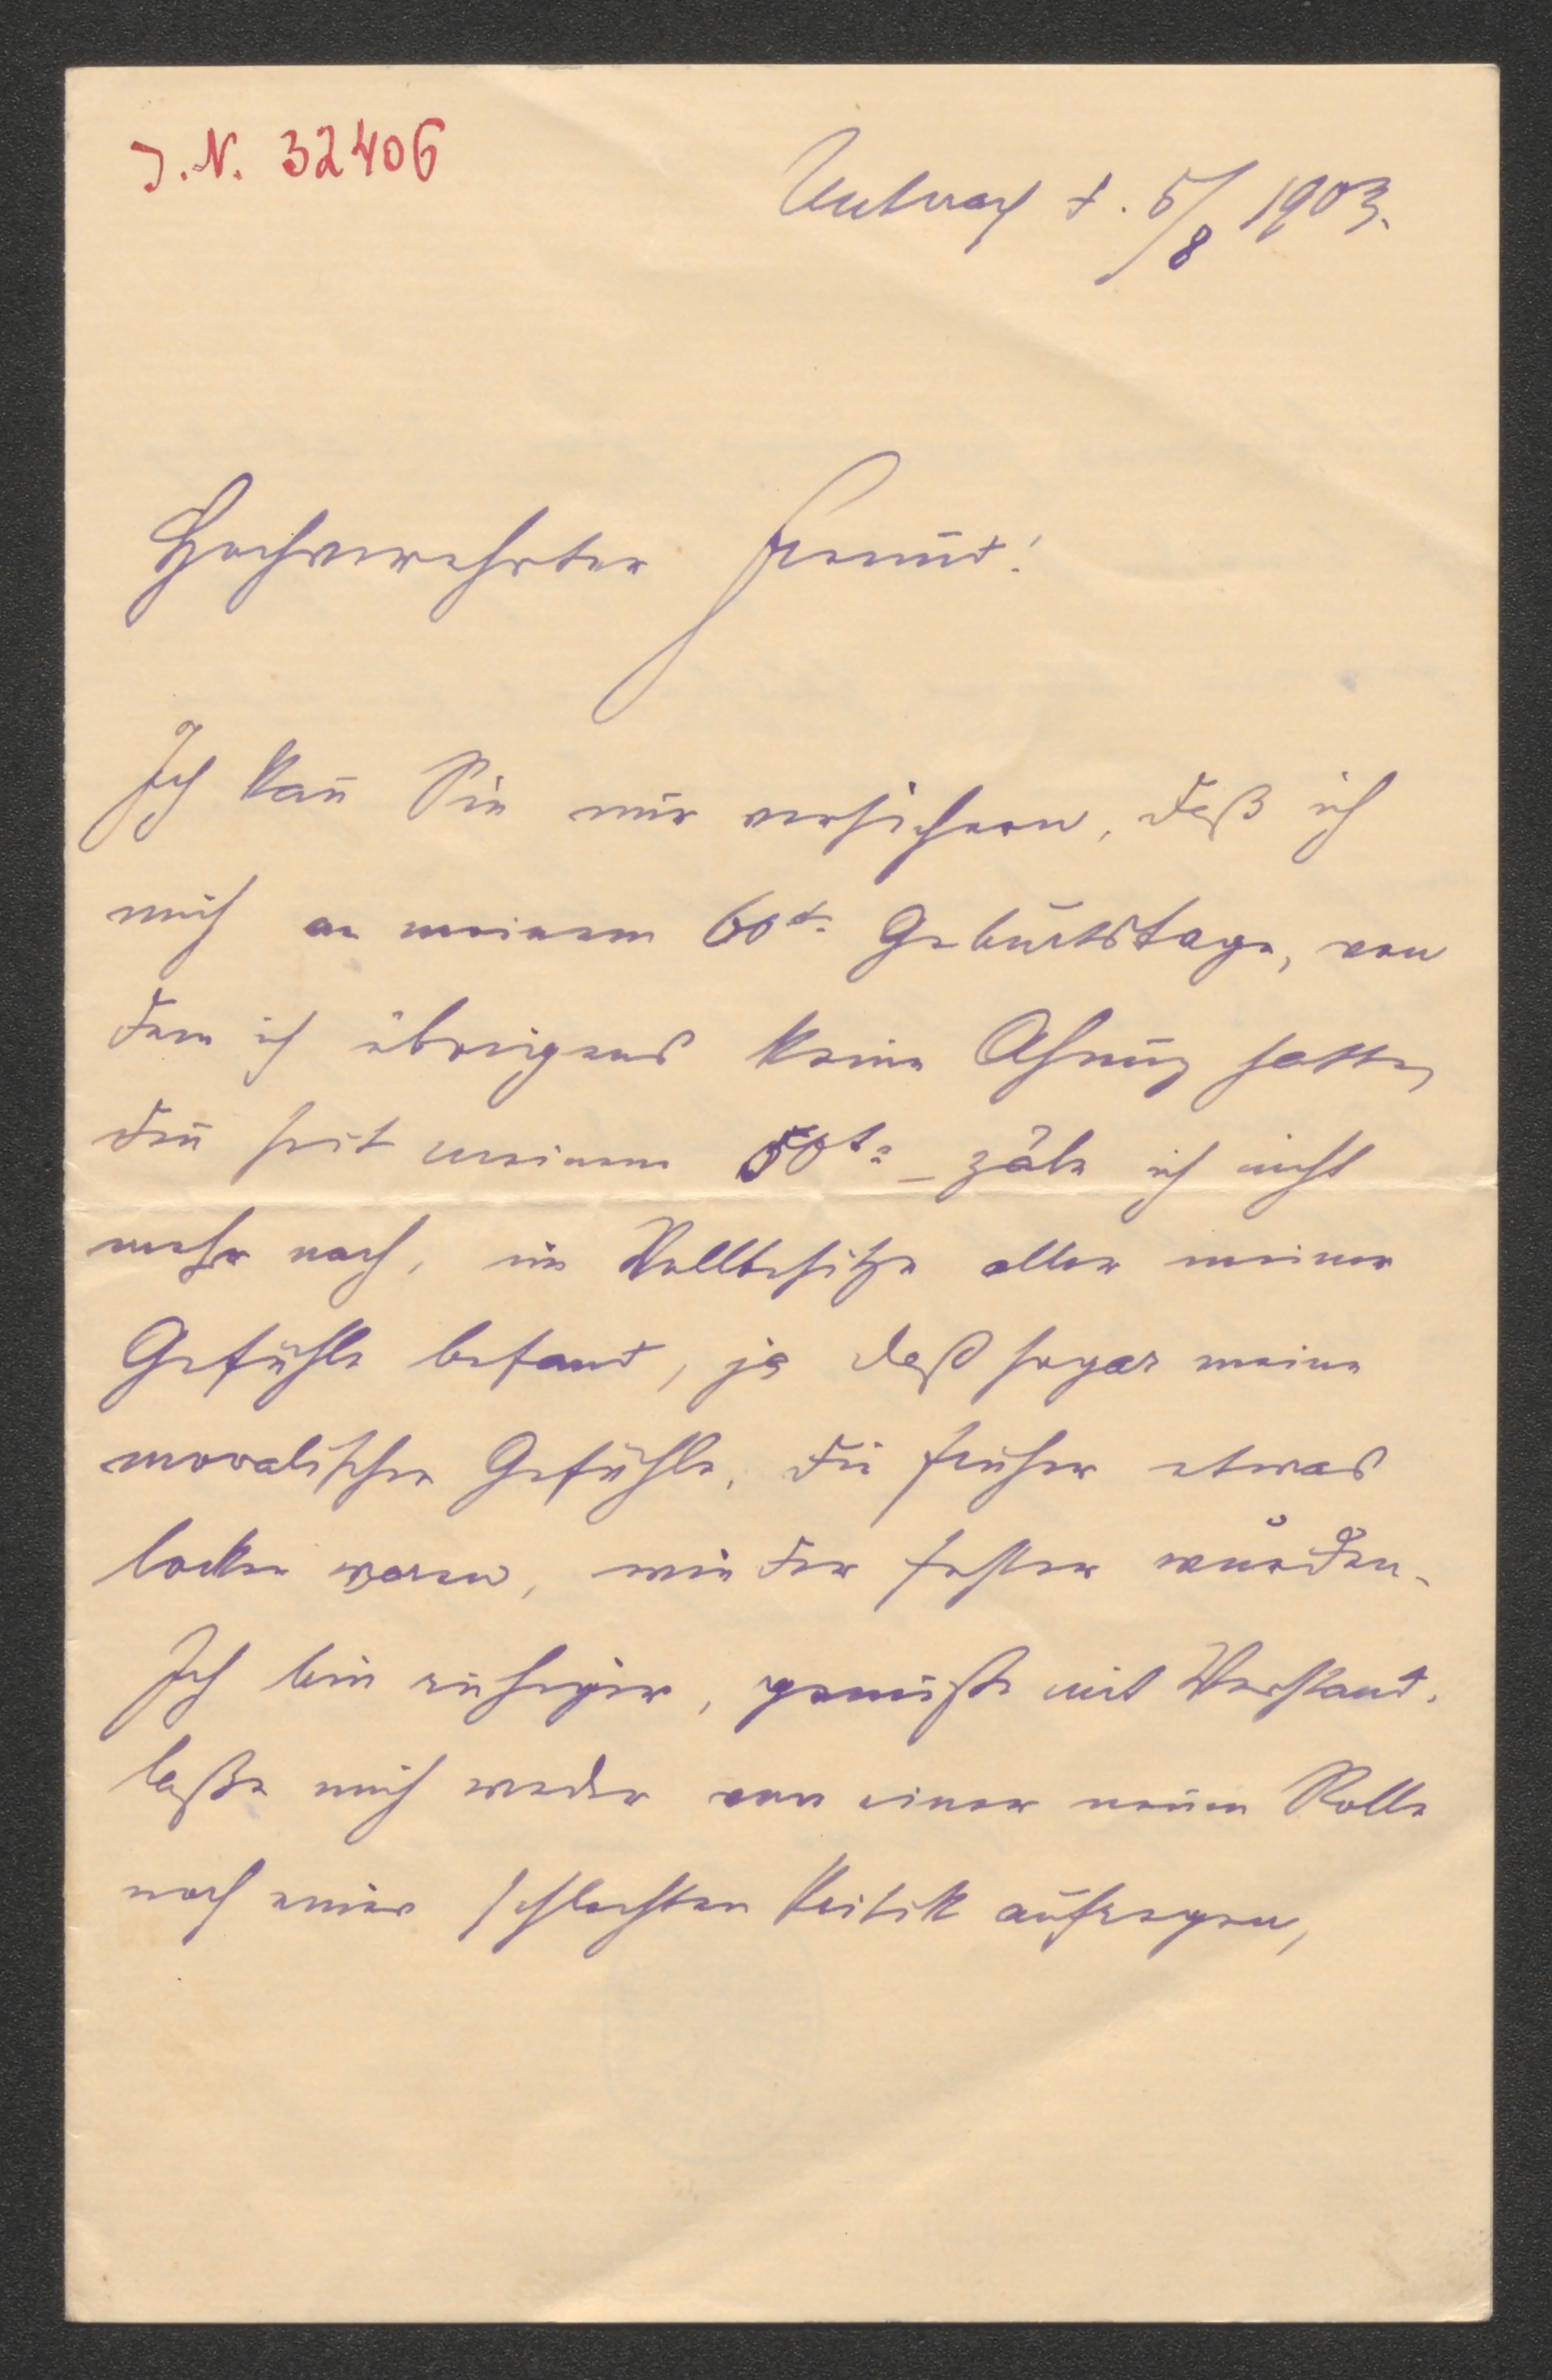 J. N. 32406
Unterach d. 5/8 1903.
Hochverehrter Freund!
Ich kan̄ Sie nur versichern, daß ich
mich an meinem 60t. Geburtstage, von
dem ich übrigens keine Ahnung hatte,
den̄ seit meinem 50t. – zäle ich nicht
mehr nach, im Vollbesitze aller meiner
Gefühle befand, ja daß sogar meine
moralischen Gefühle, die früher etwas
locker waren, wieder fester wurden.
Ich bin ruhiger, genieße mit Verstand,
laße mich weder von einer neuen Rolle
noch einer schlechten Kritik aufregen,